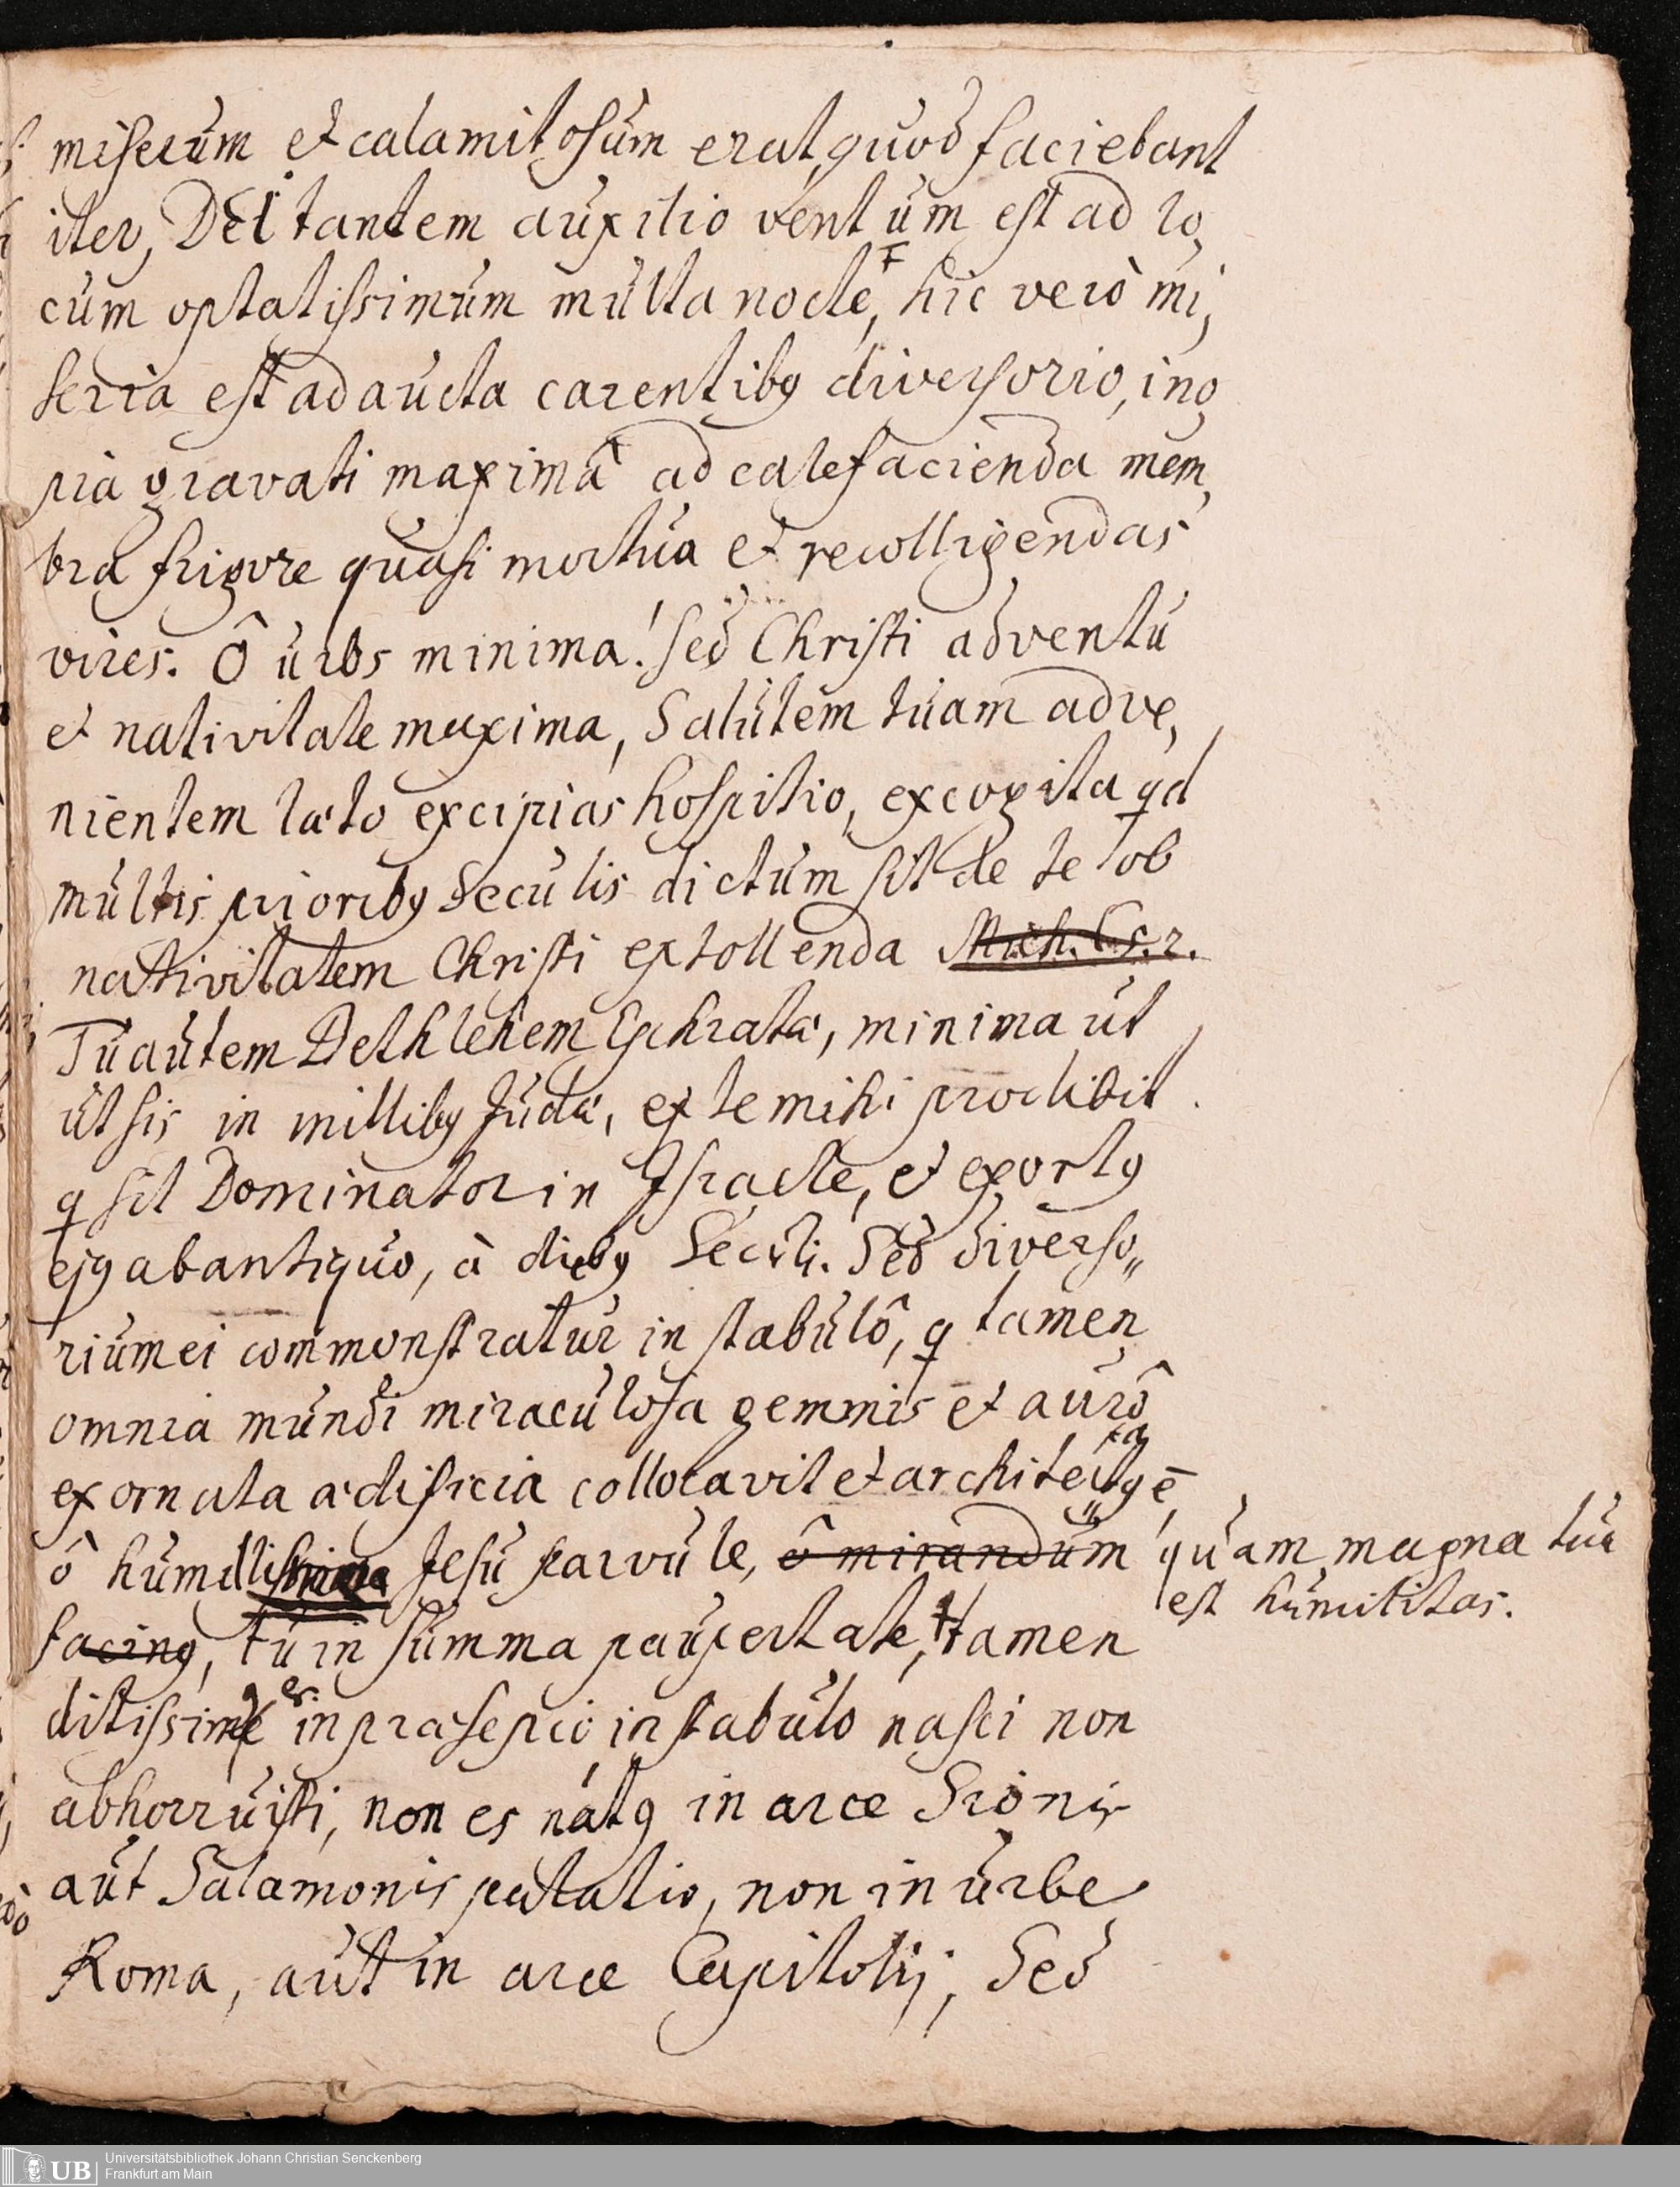 miserum et calamitosum erat, quod faciebant
iter, DEI tandem auxilio ventum est ad lo,
cum optatissimum multa nocte, hic verò mi,
seria est adaucta carentibꝯ diversorio, ino,
pia gravati maximâ ad calefacienda mem,
bra frigore quasi mortua et recolligendas
vires. Ô urbs minima! sed Christi adventu
et nativitate maxima, Salutem tuam adve,
nientem læto excipias hospitio, excogita qd
multis prioribꝯ Seculis dictum sit de te ob
nativitatem Christi extollenda Mich. C. 5. 2.
Tu autem Bethlehem Ephrata, minima ut
ut sis in millibꝯ Juda, ex te mihi prodibit
q sit Dominator in Israele, et exortꝯ
ejꝯ ab antiquo, à diebꝯ Seculi. Sed diverso„
rium ei commonstratur in stabulô, q tamen
omnia mundi miraculosa gemmis et aurô
exornata ædificia collocavit et architectꝯ ē,
ô humillissima Jesu parvule, ô mirandum quam magna tua
est humilitas.
facinꝯ, tu in summa paupertate, tamen
ditissimꝯ es in præsepio in stabulo nasci non
abhorruisti, non es natꝯ in arce Sionis
aut Salamonis palatio, non in urbe
Roma, aut in arce Capitolij, Sed
UB Universitätsbibliothek Johann Christian Senckenberg
Frankfurt am Main